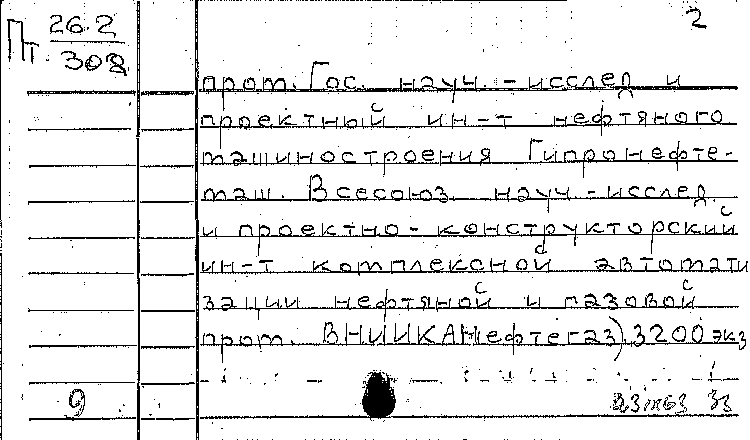 2
Пт. 26.2
308
пром. Гос. науч.-исслед и
проектный ин-т нефтяного
машиностроения Гипронефте-
маш. Всесоюз. науч-исслед.
и проектно-конструкторский
ин-т комплексной автомати
зации нефтяной и газовой
пром. ВНИИКАНефтегаз). 3200 экз
9